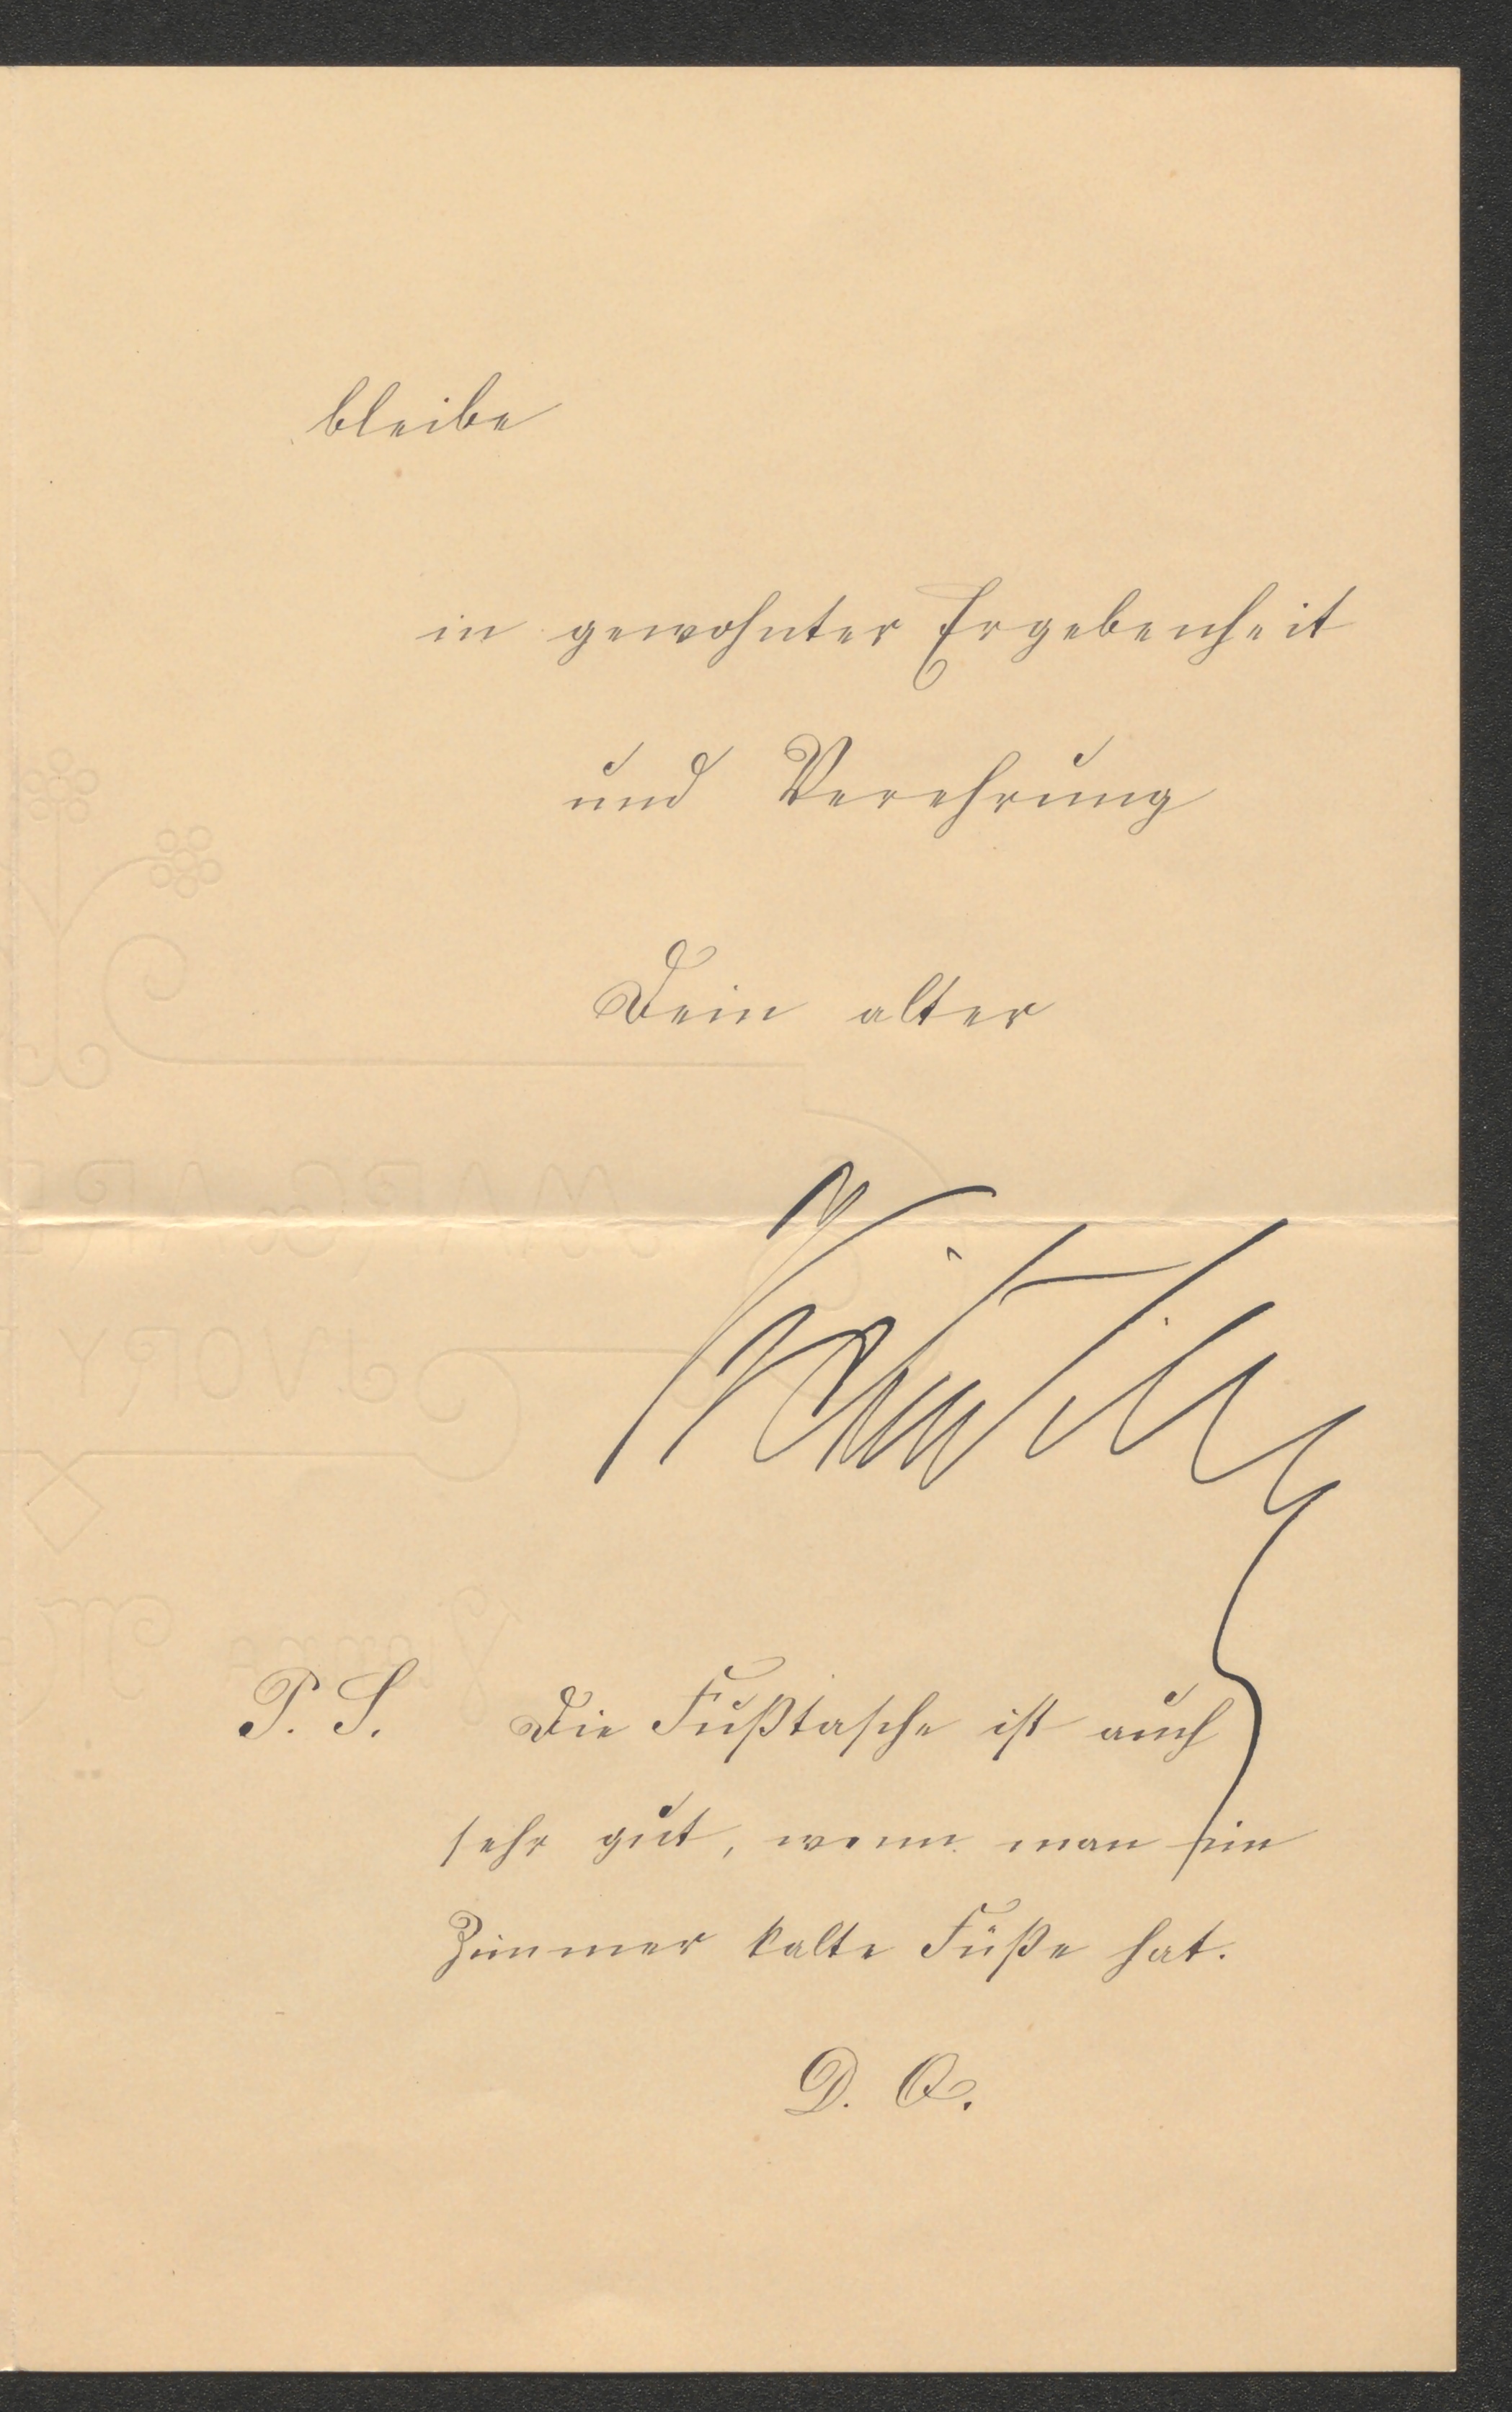 bleibe
in gewohnter Ergebenheit
und Verehrung
Dein alter
P. S. Die Fußtasche ist auch
sehr gut, wenn man im
Zimmer kalte Füße hat.
D. O.